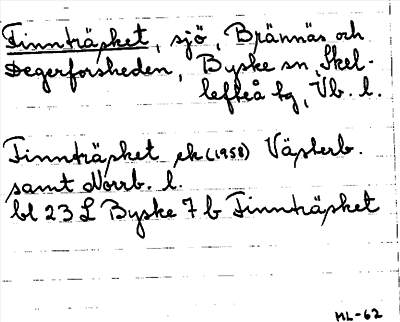 Finnträsket, sjö, Brännäs och
Degerforsheden, Byske sn, Skel-
lefteå tg, Vb. l.
Finnträsket ek (1958) Västerb.
samt Norrb. l.
bl 23 L Byske 7 b Finnträsket
ML-62